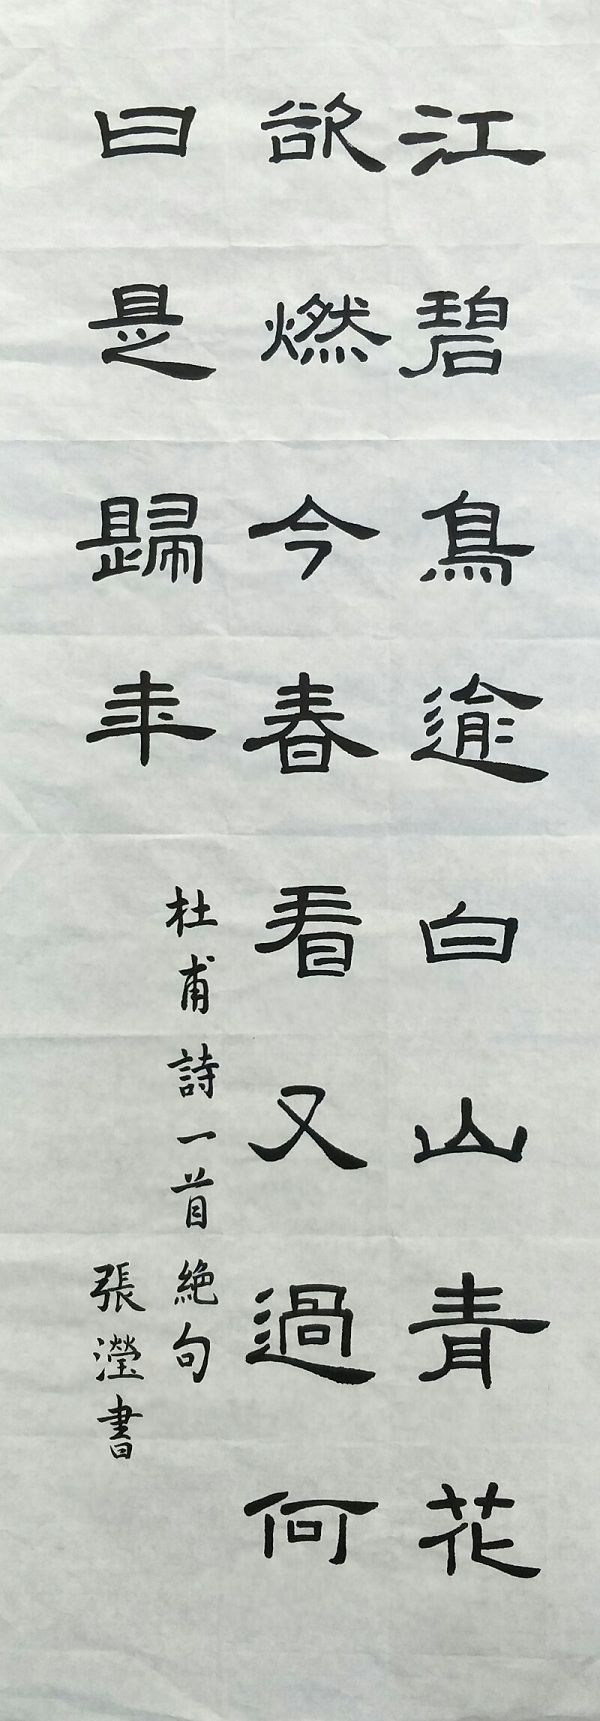 江碧鳥逾白山青花
欲燃今春看又過何
日是歸年
杜甫詩一首絕句
張瀅書